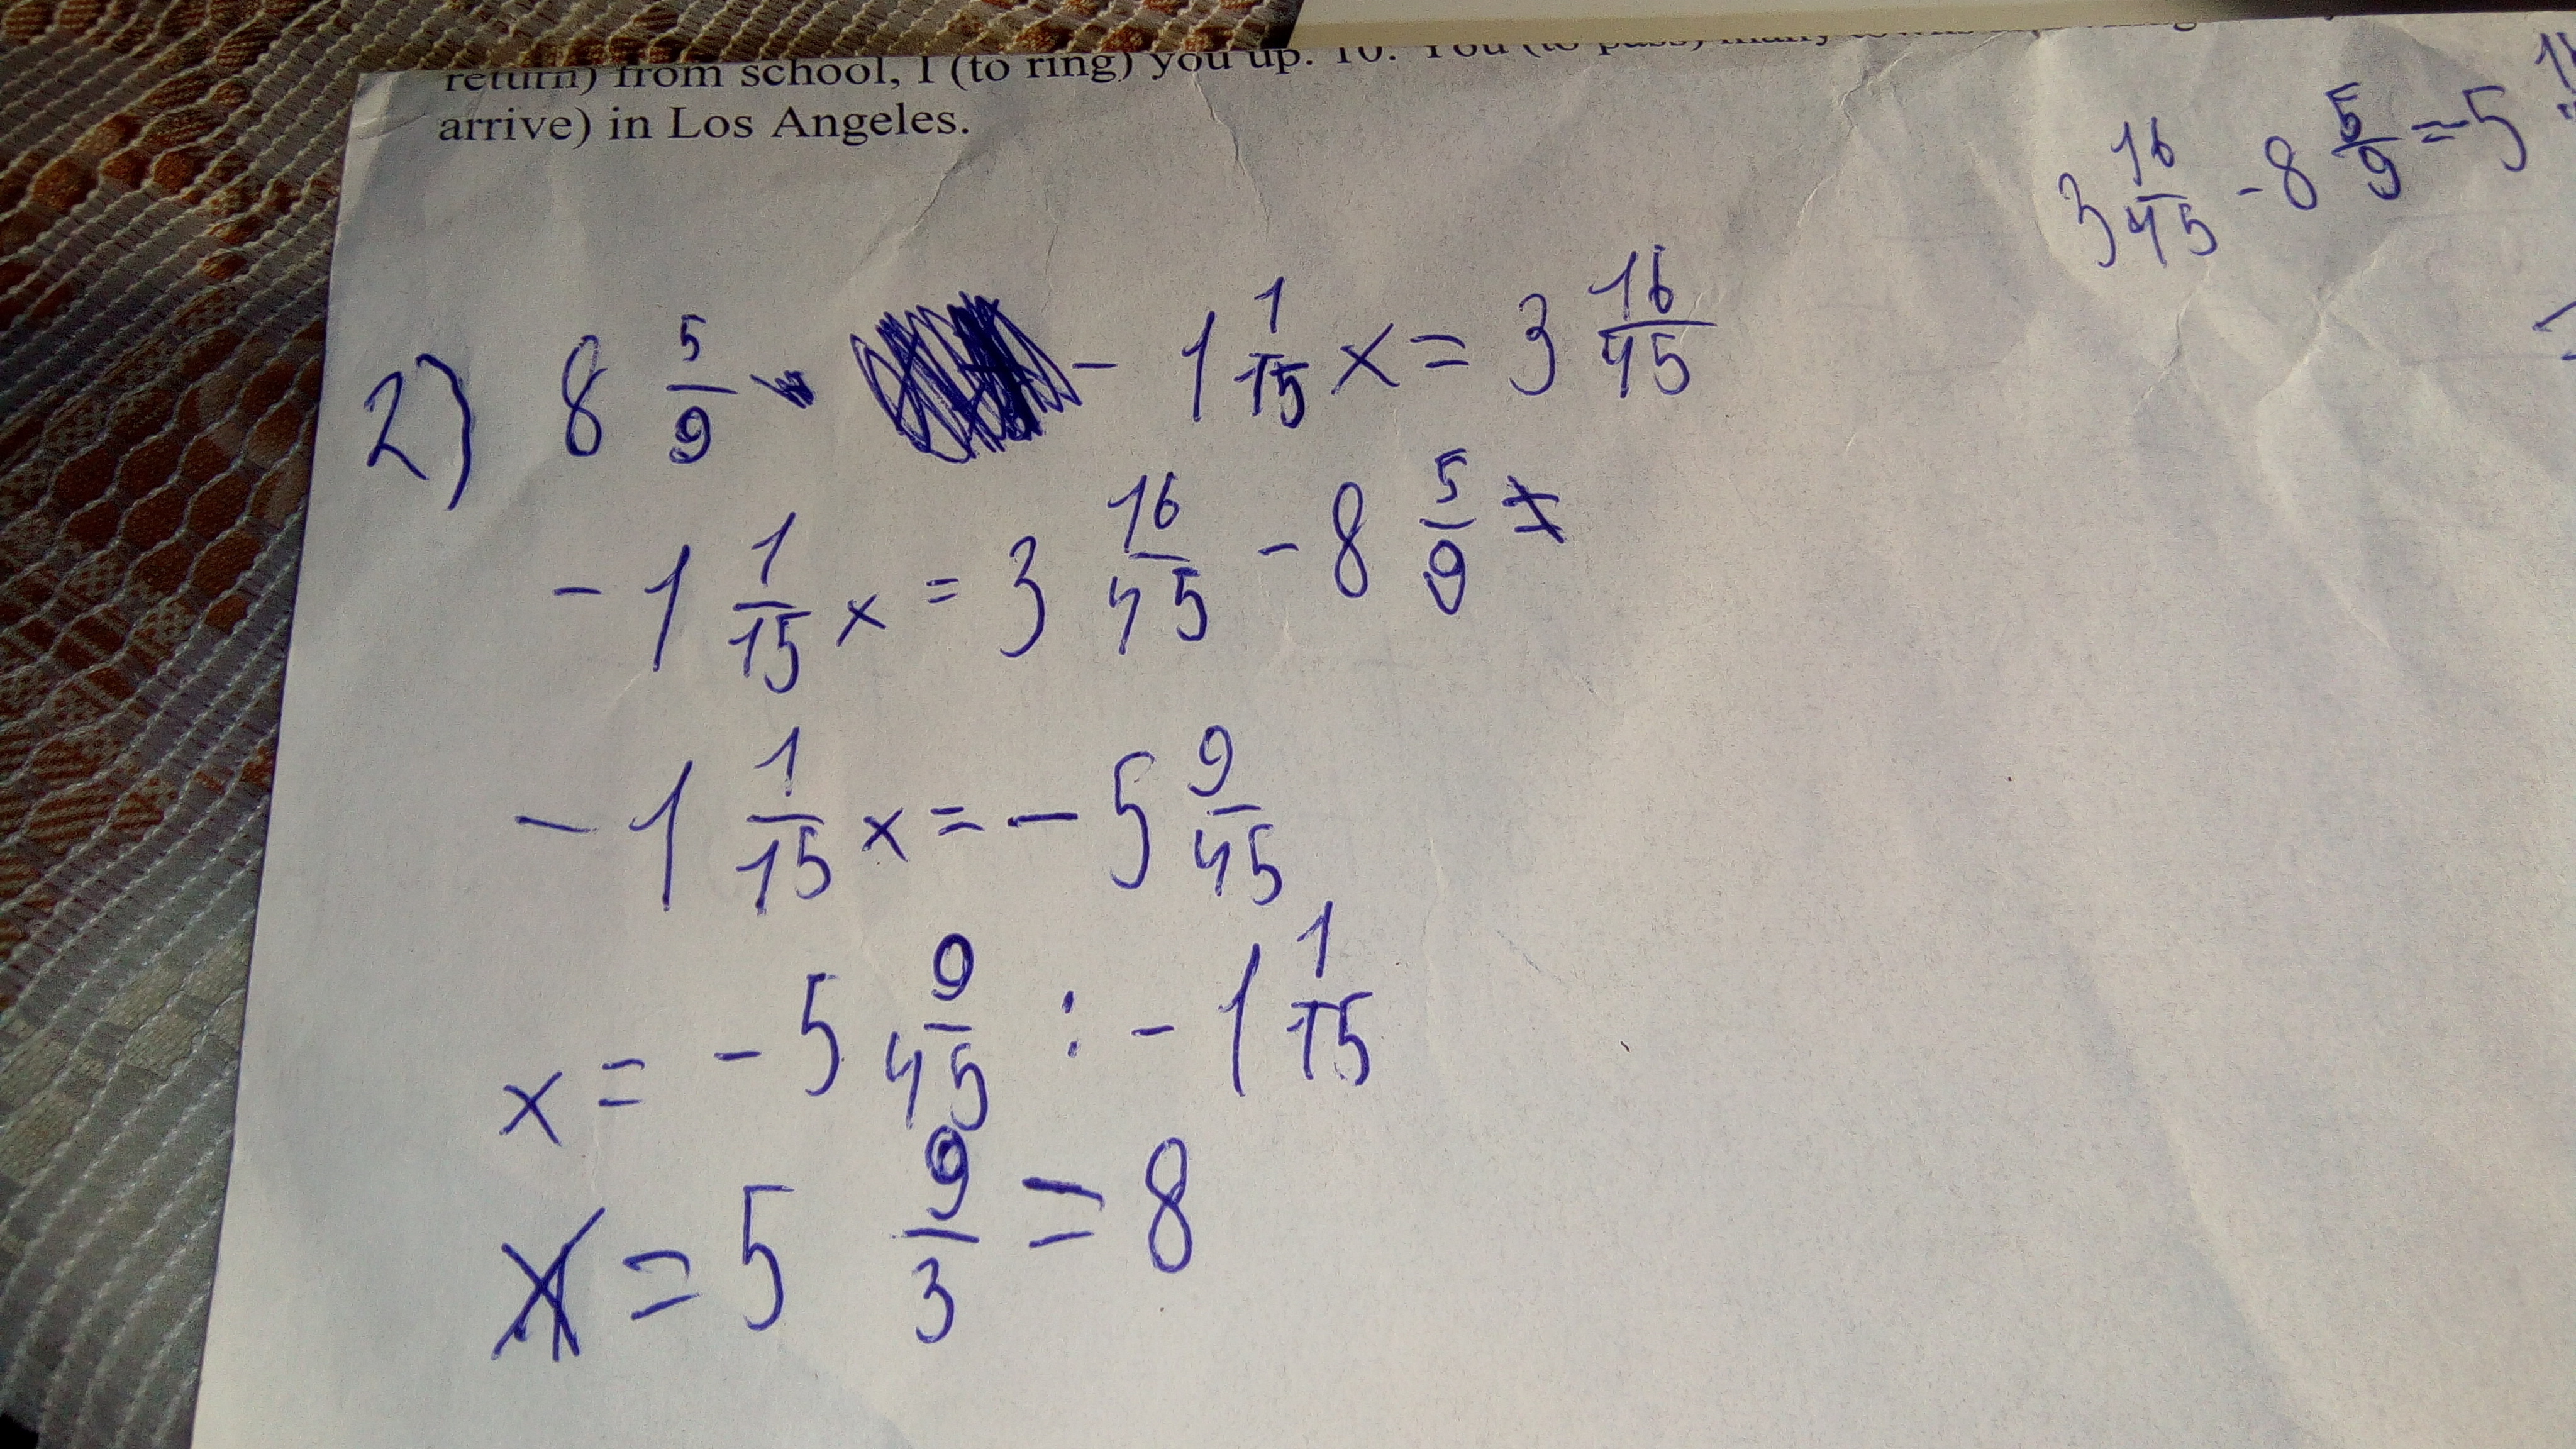 return) from school, I (to ring) you up. 10. You (to pass) many
arrive) in Los Angeles.
3 16/45 - 8 5/9 = -5
2) 8 5/9 - 1 1/15 x = 3 16/45
- 1 1/15 x = 3 16/45 - 8 5/9
- 1 1/15 x = - 5 9/45
x = - 5 9/45 : - 1 1/15
x = 5 9/3 = 8